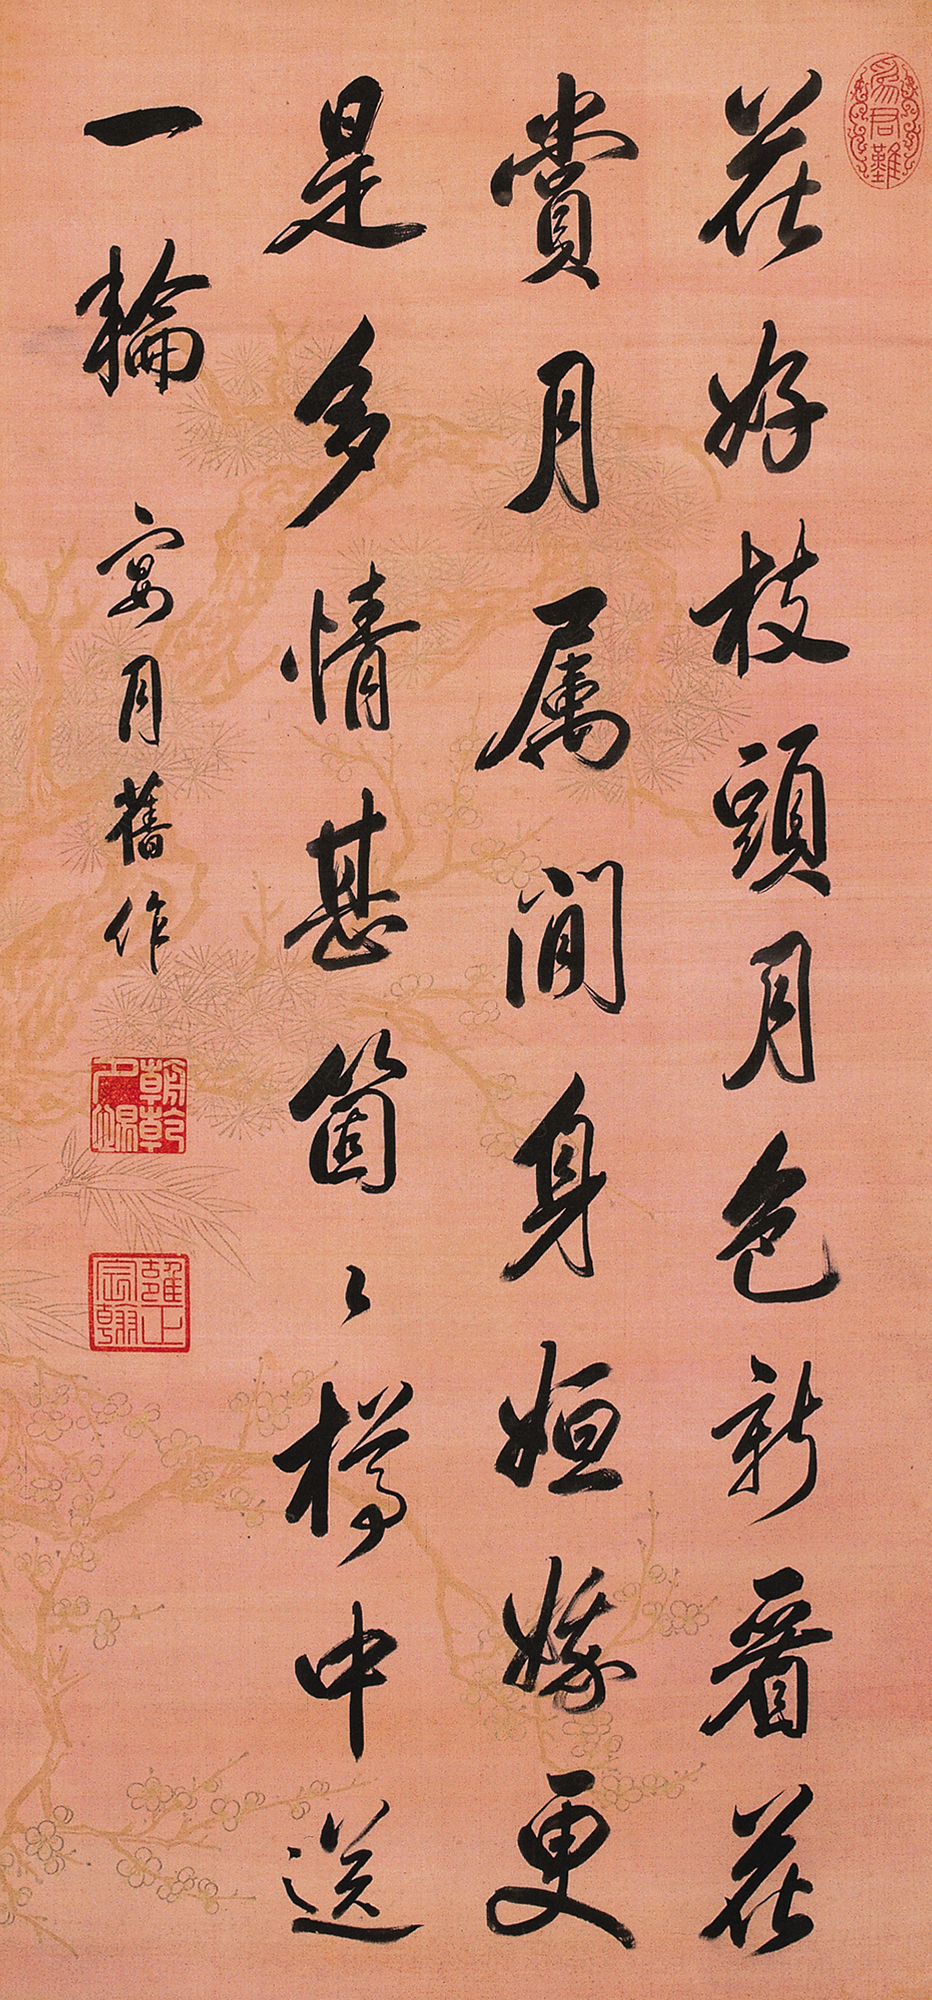 花好枝頭月色新看花
賞月属閒身姮娥更
是多情甚箇〻樽中送
一輪
宴月舊作
為君難
朝乾夕惕
雍正宸翰